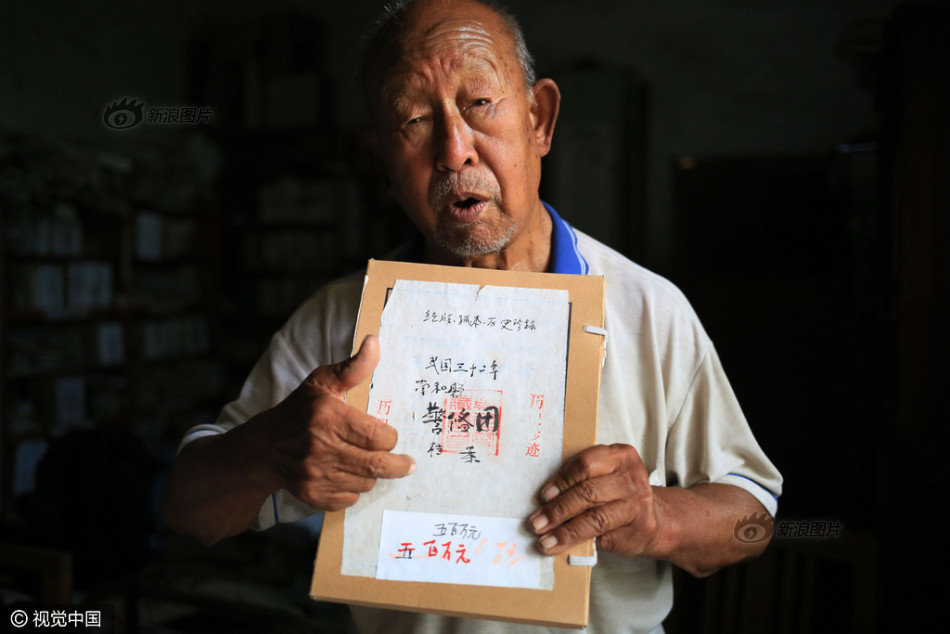 新浪图片
绝版、孤本、历史珍按
民国三十二年
常和县
警备团
档案
历
历史之迹
五百万元
五百万元
新浪图片
© 视觉中国